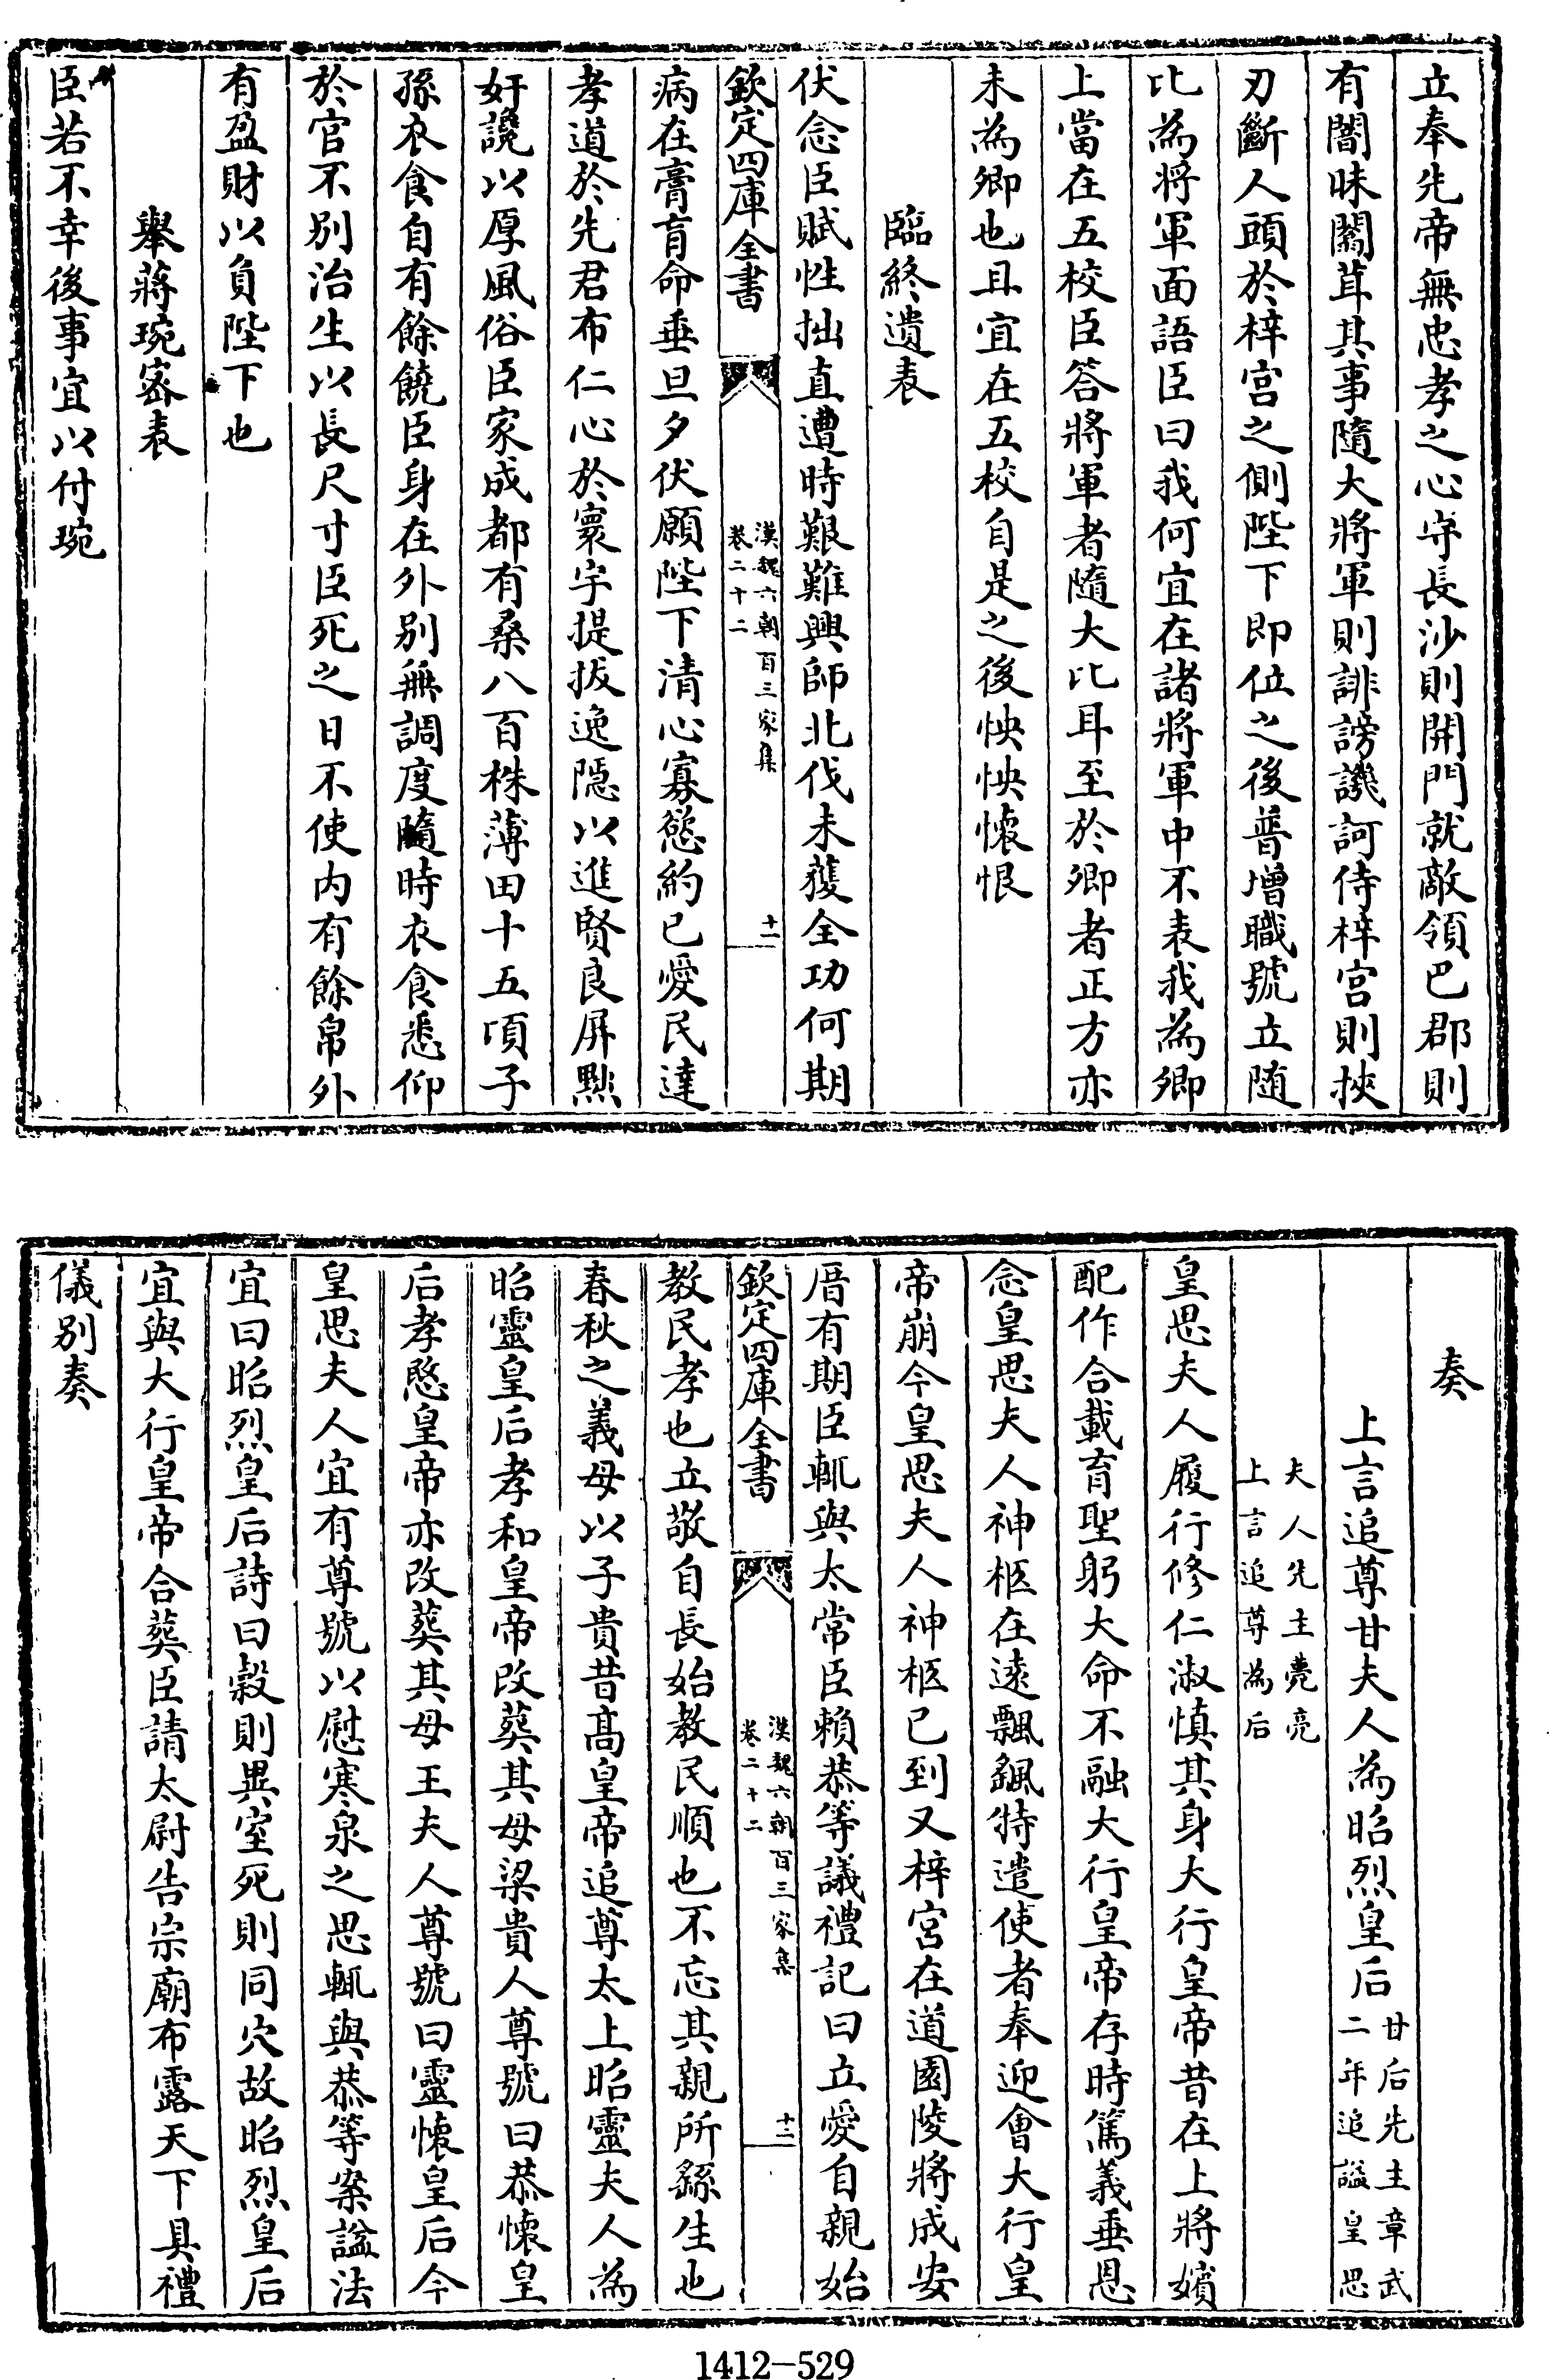 立奉先帝無忠孝之心守長沙則開門就敵領巴郡則
有闇昧闒茸其事隨大將軍則誹謗譏訶侍梓宮則挾
刃斷人頭於梓宮之側陛下即位之後普增職號立隨
比為將軍面語臣曰我何宜在諸將軍中不表我為卿
上當在五校臣答將軍者隨大比耳至於卿者正方亦
未為卿也且宜在五校自是之後怏怏懷恨
臨終遺表
伏念臣賦性拙直遭時艱難興師北伐未獲全功何期
欽定四庫全書
漢魏六朝百三家集
卷二十二
十一
病在膏肓命垂旦夕伏願陛下清心寡慾約己愛民達
孝道於先君布仁心於寰宇提拔逸隱以進賢良屏黜
奸讒以厚風俗臣家成都有桑八百株薄田十五頃子
孫衣食自有餘饒臣身在外別無調度隨時衣食悉仰
於官不別治生以長尺寸臣死之日不使內有餘帛外
有盈財以負陛下也
舉蔣琬密表
臣若不幸後事宜以付琬
奏
上言追尊甘夫人為昭烈皇后甘后先主章武
二年追諡皇思
夫人先主薨亮
上言追尊為后
皇思夫人履行修仁淑慎其身大行皇帝昔在上將嬪
配作合載育聖躬大命不融大行皇帝存時篤義垂恩
念皇思夫人神柩在遠飄颻特遣使者奉迎會大行皇
帝崩今皇思夫人神柩已到又梓宮在道園陵將成安
厝有期臣輒與太常臣賴恭等議禮記曰立愛自親始
欽定四庫全書
漢魏六朝百三家集
卷二十二
十二
教民孝也立敬自長始教民順也不忘其親所繇生也
春秋之義母以子貴昔高皇帝追尊太上昭靈夫人為
昭靈皇后孝和皇帝改葬其母梁貴人尊號曰恭懷皇
后孝愍皇帝亦改葬其母王夫人尊號曰靈懷皇后今
皇思夫人宜有尊號以慰寒泉之思輒與恭等案諡法
宜曰昭烈皇后詩曰穀則異室死則同穴故昭烈皇后
宜與大行皇帝合葬臣請太尉告宗廟布露天下具禮
儀別奏
1412-529